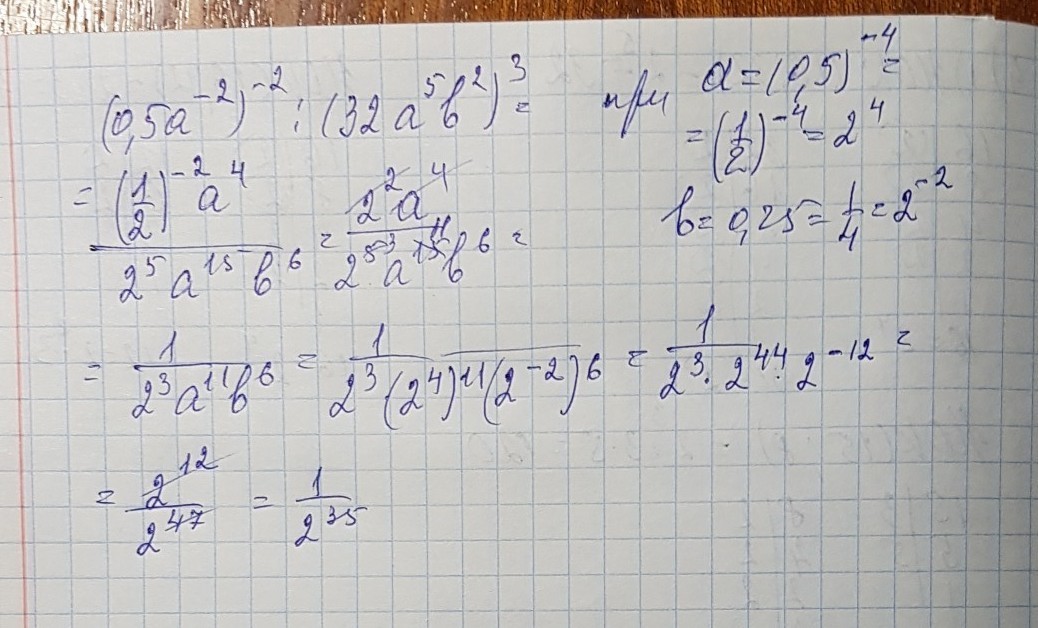 (0,5a⁻²)⁻² : (32a⁵b²)³ = при a = (0,5)⁻⁴ =
= (1/2)⁻⁴ = 2⁴
= (1/2)⁻²a⁴ / 2⁵a¹⁵b⁶ = 2²a⁴ / 2⁵ ³a¹⁵ ¹¹b⁶ =
b = 0,25 = 1/4 = 2⁻²
= 1 / 2³a¹¹b⁶ = 1 / 2³(2⁴)¹¹(2⁻²)⁶ = 1 / 2³·2⁴⁴·2⁻¹² =
= 2¹² / 2⁴⁷ = 1 / 2³⁵